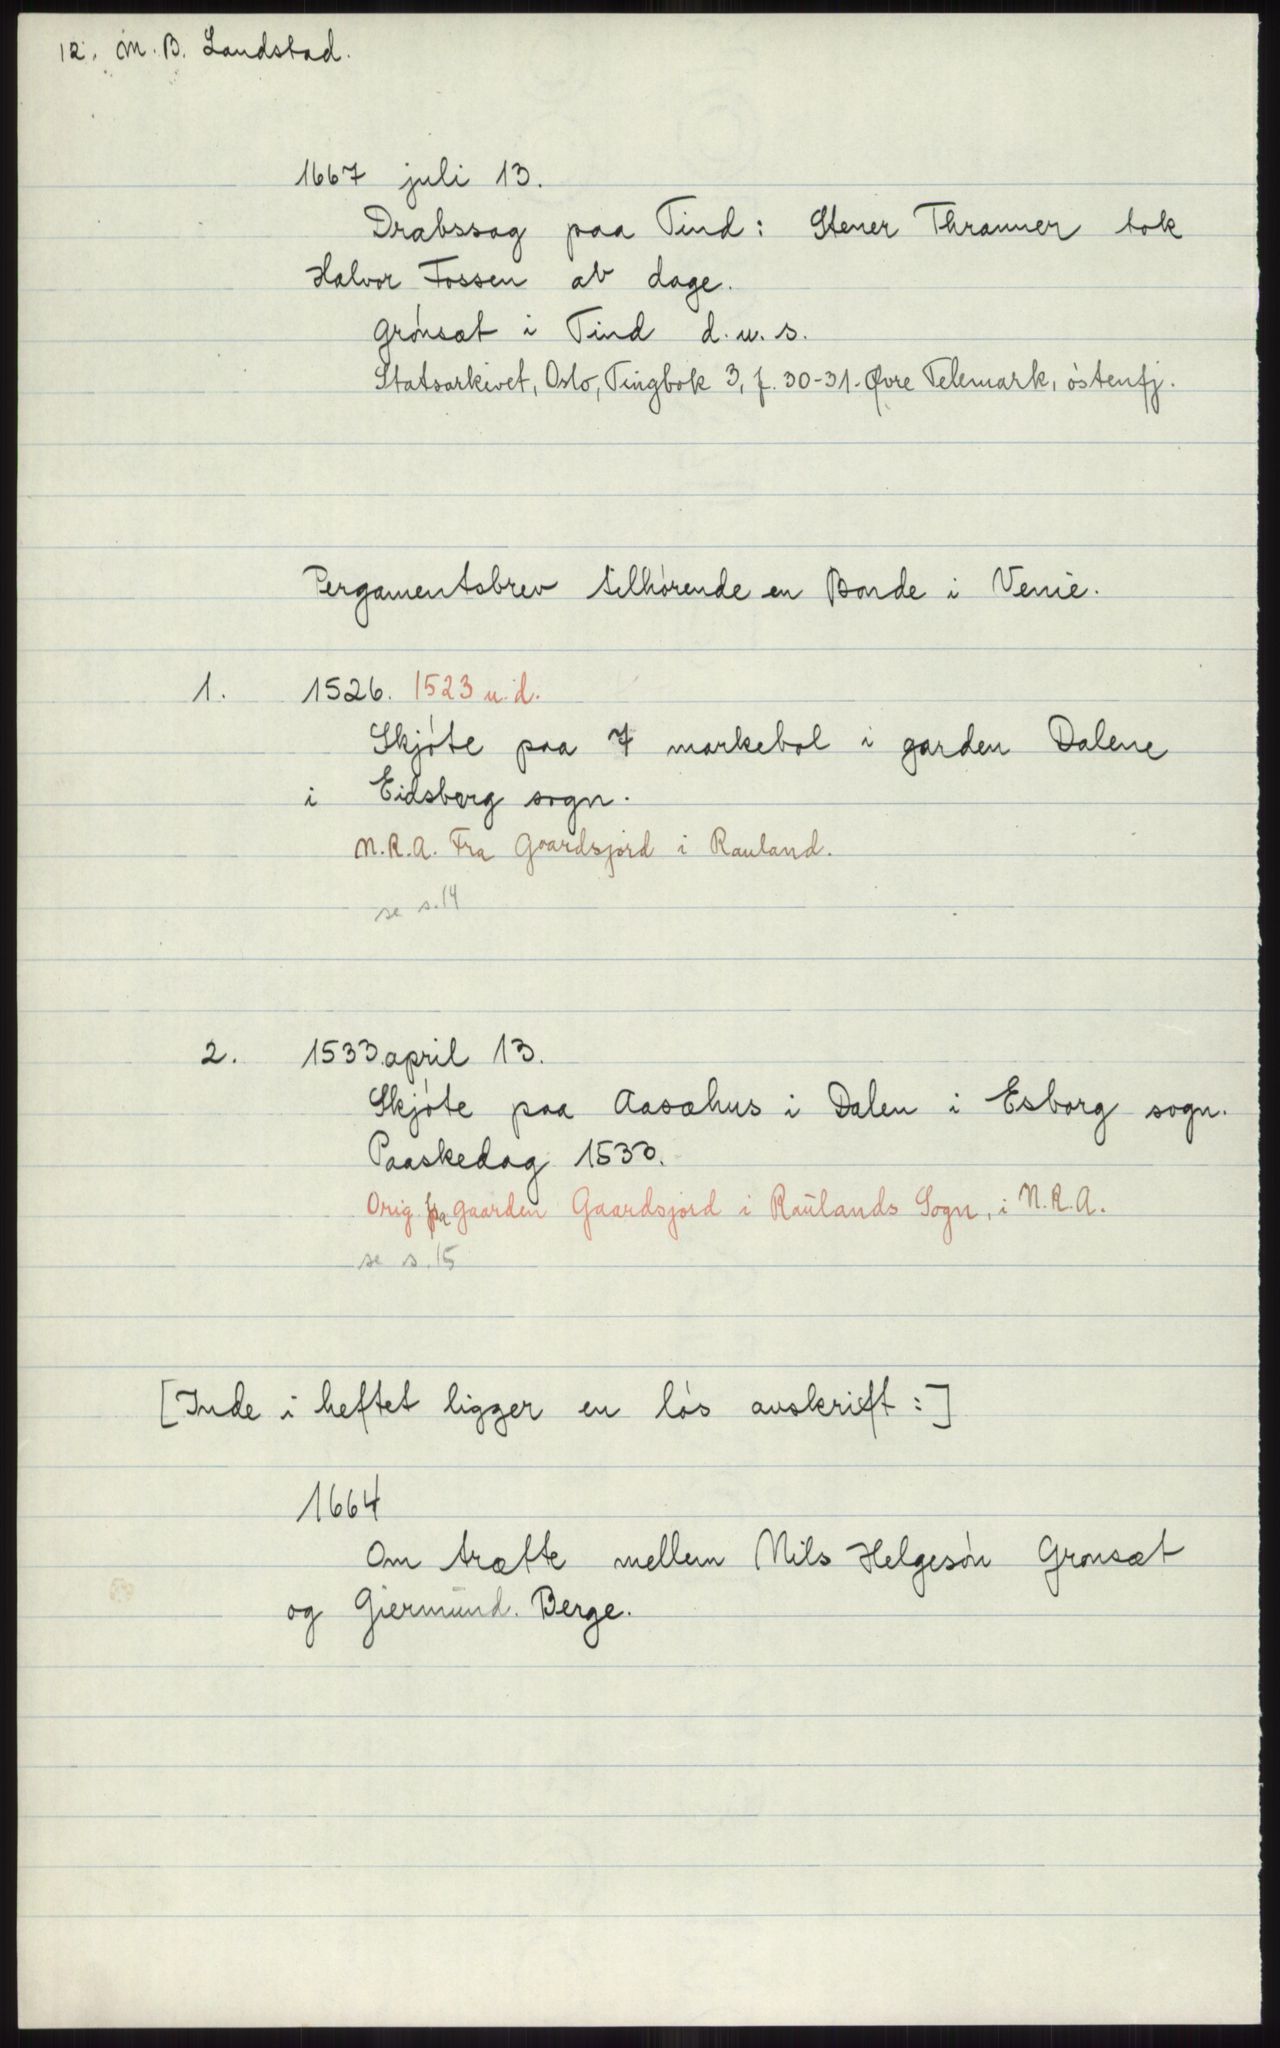 12. M. B. Landstad.
1667 juli 13.
Drabssag paa Tind: Stener Thranner tok
Halvor Fossen av dage.
Grónsæt i Tind d. u. s.
Statsarkivet, Oslo, Tingbok 3, f. 30-31. Øvre Telemark, óstenfj.
Pergamentsbrev tilhórende en Bonde i Venie.
1. 1526. 1523 u. d.
Skjóte paa 7 markebol i garden Dalene
i Eidsborg sogn.
N.R.A. Fra Gaardsjord i Rauland.
se s. 14
2. 1533 april 13.
Skjóte paa Aasæhus i Dalen i Esborg sogn.
Paaskedag 1533.
Orig. fra gaarden Gaardsjord i Raulands Sogn, i N.R.A.
se s. 15
[Inde i heftet ligger en lós avskrift:]
1664
Om trætte mellem Nils Helgesón Gronsæt
og Giermund Berge.